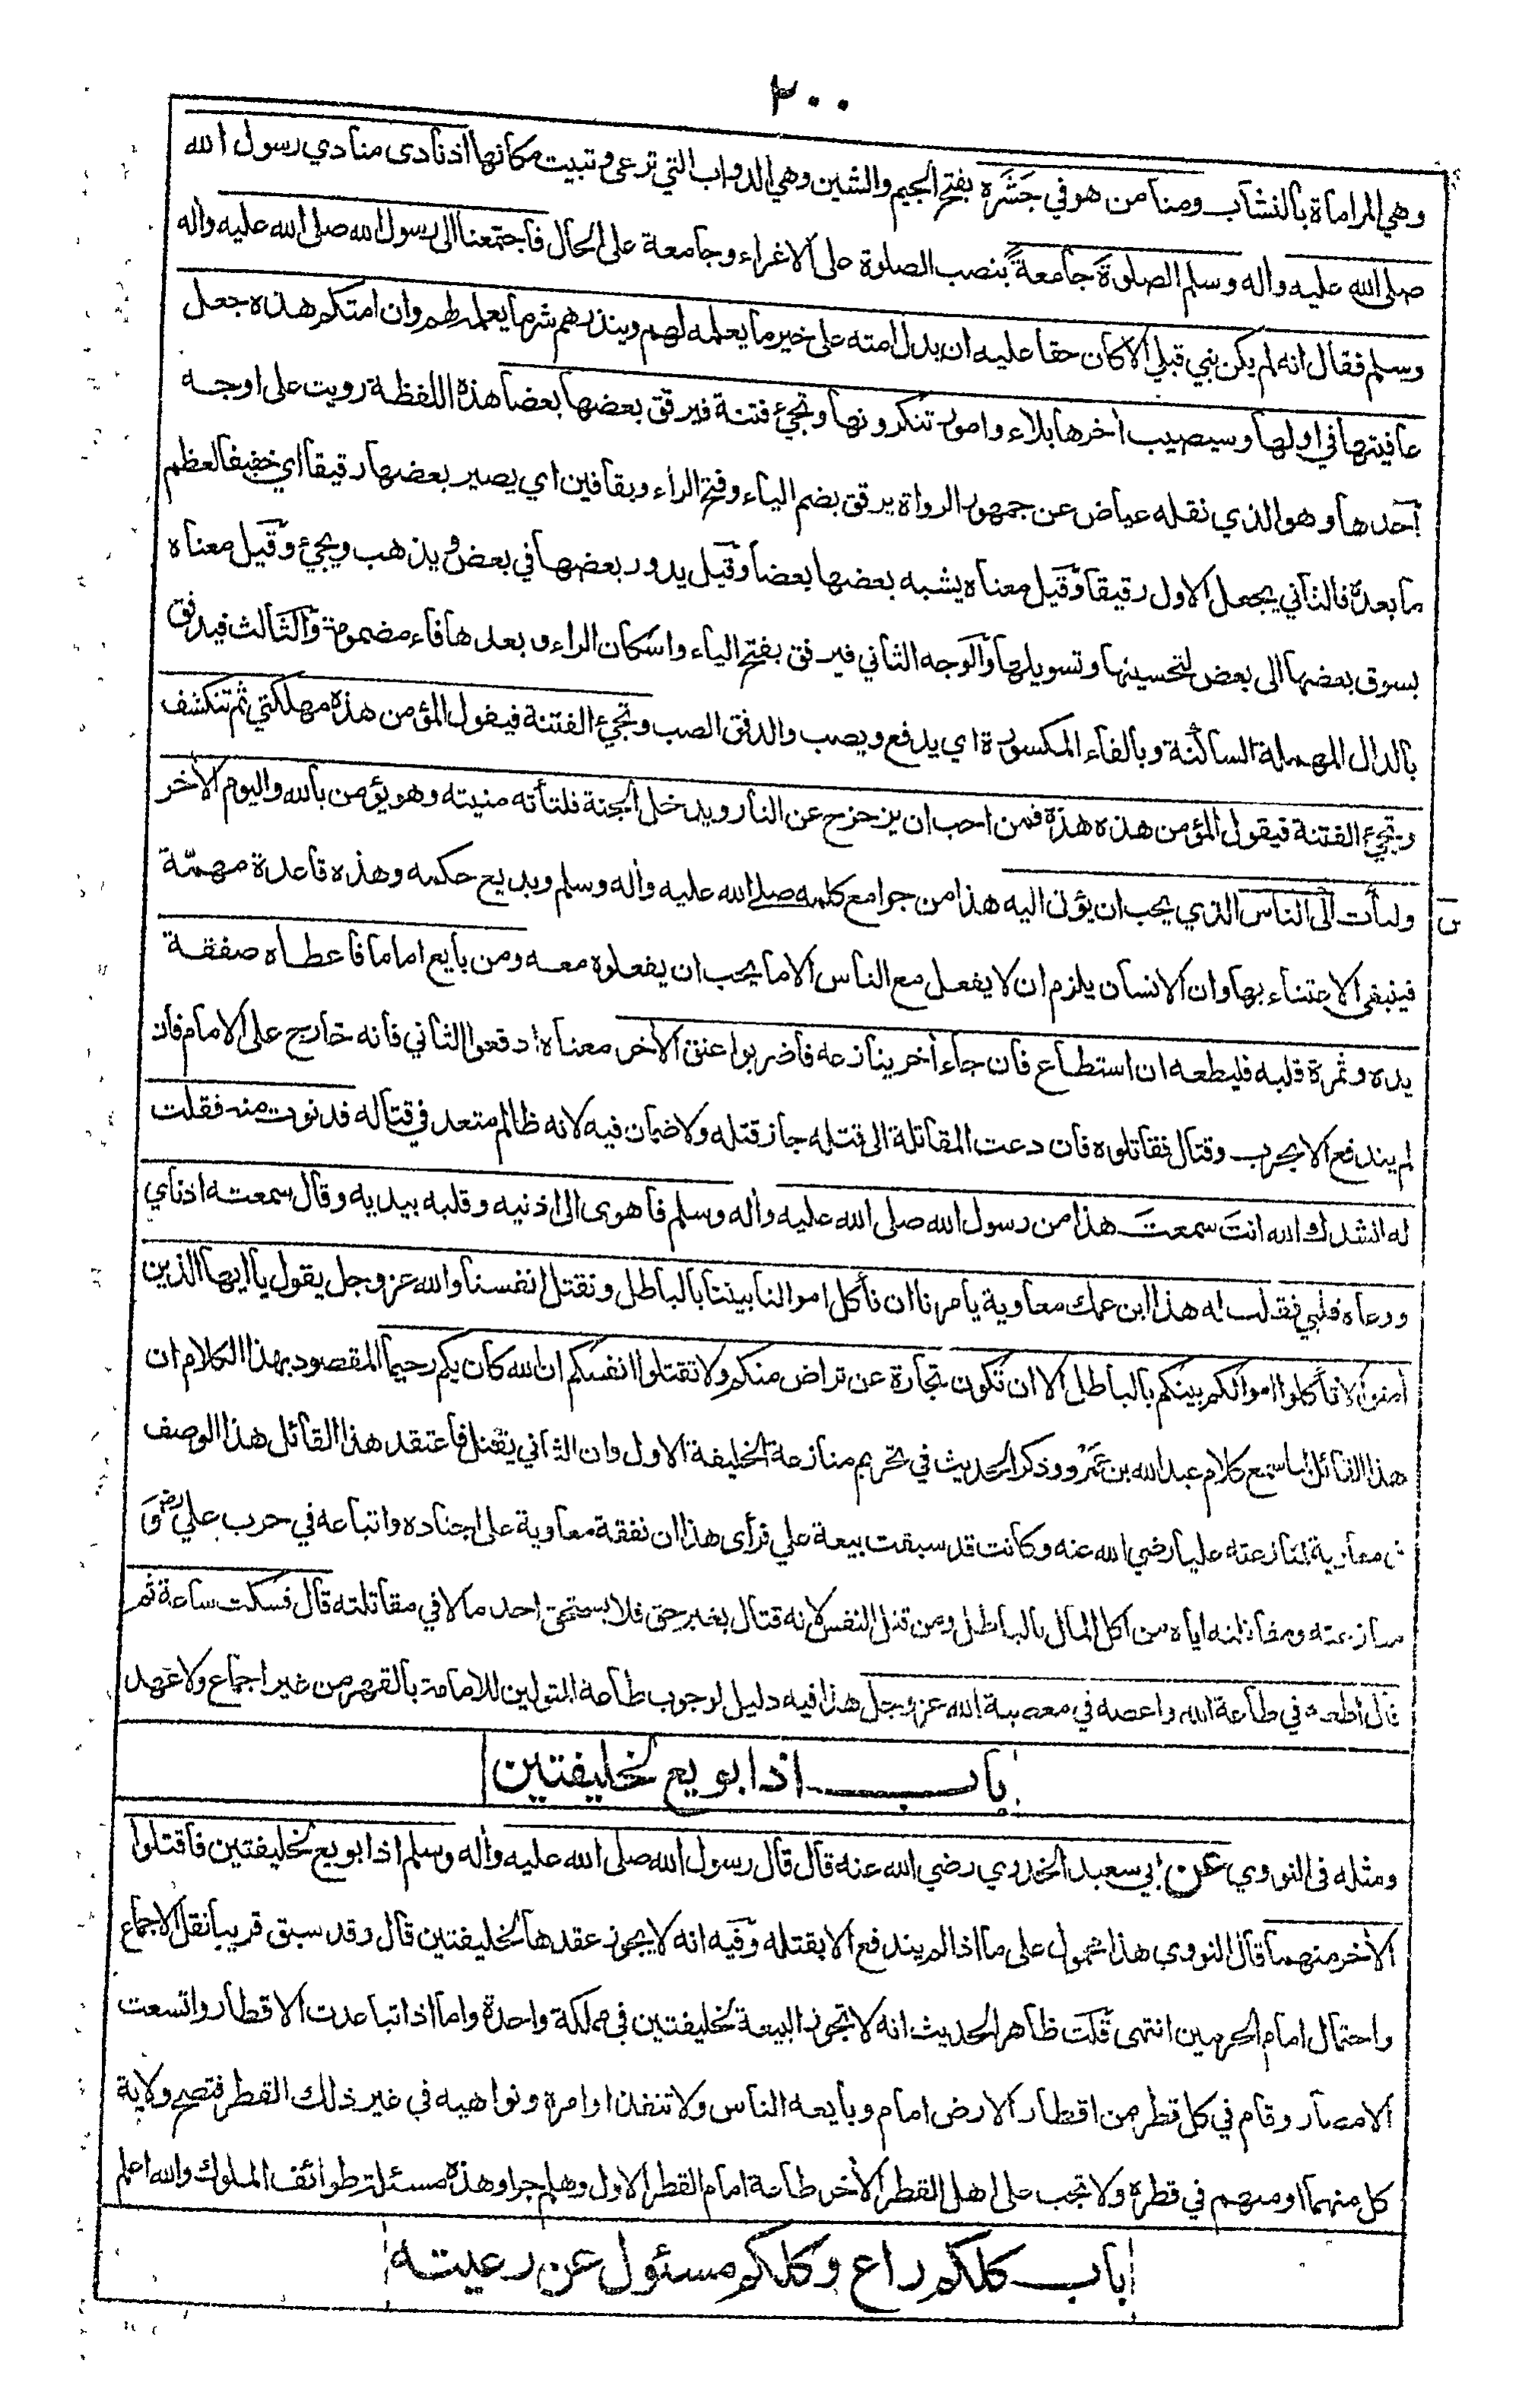 ٣٠٠
وهي المراماة بالنشاب ومنا من هو في جَشَرِه بفتح الجيم والشين وهي الدواب التي ترعى وتبيت مكانها اذ نادى منادي رسول الله
صلى الله عليه واله وسلم الصلوةَ جامعةً بنصب الصلوة على الاغراء وجامعة على الحال فاجتمعنا الى رسول الله صلى الله عليه واله
وسلم فقال انه لم يكن نبي قبلي الا كان حقا عليه ان يدل امته على خير ما يعلمه لهم وينذرهم شر ما يعلمه لهم وان امتكم هذه جعل
عافيتها في اولها وسيصيب اخرها بلاء وامور تنكرونها وتجيء فتنة فيرقق بعضها بعضا هذه اللفظة رويت على اوجه
احدها وهو الذي نقله عياض عن جمهور الرواة يرقق بضم الياء وفتح الراء وبقافين اي يصير بعضها رقيقا اي خفيفا لعظم
ما بعده فالثاني يجعل الاول رقيقا وقيل معناه يشبه بعضها بعضا وقيل يدور بعضها في بعض ويذهب ويجيء وقيل معناه
يسوق بعضها الى بعض لتحسينها وتسويلها والوجه الثاني فيرفق بفتح الياء واسكان الراء وبعدها فاء مضمومة والثالث فيدفق
بالدال المهملة الساكنة وبالفاء المكسورة اي يدفع ويصب والدفق الصب وتجيء الفتنة فيقول المؤمن هذه مهلكتي ثم تنكشف
وتجيء الفتنة فيقول المؤمن هذه هذه فمن احب ان يزحزح عن النار ويدخل الجنة فلتأته منيته وهو يؤمن بالله واليوم الأخر
وليأت الى الناس الذي يحب ان يؤتى اليه هذا من جوامع كلمه صلى الله عليه واله وسلم وبديع حكمه وهذه قاعدة مهمّة
فينبغي الاعتناء بها وان الانسان يلزم ان لا يفعل مع الناس الا ما يحب ان يفعلوه معه ومن بايع اماما فاعطاه صفقة
يده وثمرة قلبه فليطعه ان استطاع فان جاء أخر ينازعه فاضربوا عنق الأخر معناه ادفعوا الثاني فانه خارج على الامام فان
لم يندفع الا بحرب وقتال فقاتلوه فان دعت المقاتلة الى قتله جاز قتله ولا ضمان فيه لانه ظالم متعد في قتاله فدنوت منه فقلت
له انشدك الله انتَ سمعتَ هذا من رسول الله صلى الله عليه واله وسلم فاهوى الى اذنيه وقلبه بيديه وقال سمعته اذناي
ووعاه قلبي فقلت له هذا ابن عمك معاوية يامرنا ان نأكل اموالنا بيننا بالباطل ونقتل انفسنا والله عز وجل يقول يا ايها الذين
امنوا لا تأكلوا اموالكم بينكم بالباطل الا ان تكون تجارة عن تراض منكم ولا تقتلوا انفسكم ان الله كان بكم رحيما المقصود بهذا الكلام ان
هذا القائل لما سمع كلام عبد الله بن عَمْرو وذكر الحديث في تحريم منازعة الخليفة الاول وان الثاني يقتل فاعتقد هذا القائل هذا الوصف
معاوية لمنازعته عليا رضي الله عنه وكانت قد سبقت بيعة علي فرأى هذا ان نفقة معاوية على اجناده واتباعه في حرب علي رض و
منازعته ومقاتلته اياه من اكل المال بالباطل ومن قتل النفس لانه قتال بغير حق فلا يستحق احد مالا في مقاتلته قال فسكت ساعة ثم
قال اطعه في طاعة الله واعصه في معصية الله عز وجل هذا فيه دليل لوجوب طاعة المتولين للامامة بالقهر من غير اجماع ولا عهد
باب اذا بويع لخليفتين
ومثله في النووي عن ابي سعيد الخدري رضي الله عنه قال قال رسول الله صلى الله عليه واله وسلم اذا بويع لخليفتين فاقتلوا
الأخر منهما قال النووي هذا محمول على ما اذا لم يندفع الا بقتله وفيه انه لا يجوز عقدها لخليفتين قال وقد سبق قريبا نقل الاجماع
واحتمال امام الحرمين انتهى قلت ظاهر الحديث انه لا تجوز البيعة لخليفتين في مملكة واحدة واما اذا تباعدت الاقطار واتسعت
الامصار وقام في كل قطر من اقطار الارض امام وبايعه الناس ولا تنفذ اوامره ونواهيه في غير ذلك القطر فتصح ولاية
كل منهما او منهم في قطره ولا تجب على اهل القطر الأخر طاعة امام القطر الاول وهلم جرا وهذه مسئلة طوائف الملوك والله اعلم
باب كلكم راع وكلكم مسئول عن رعيته